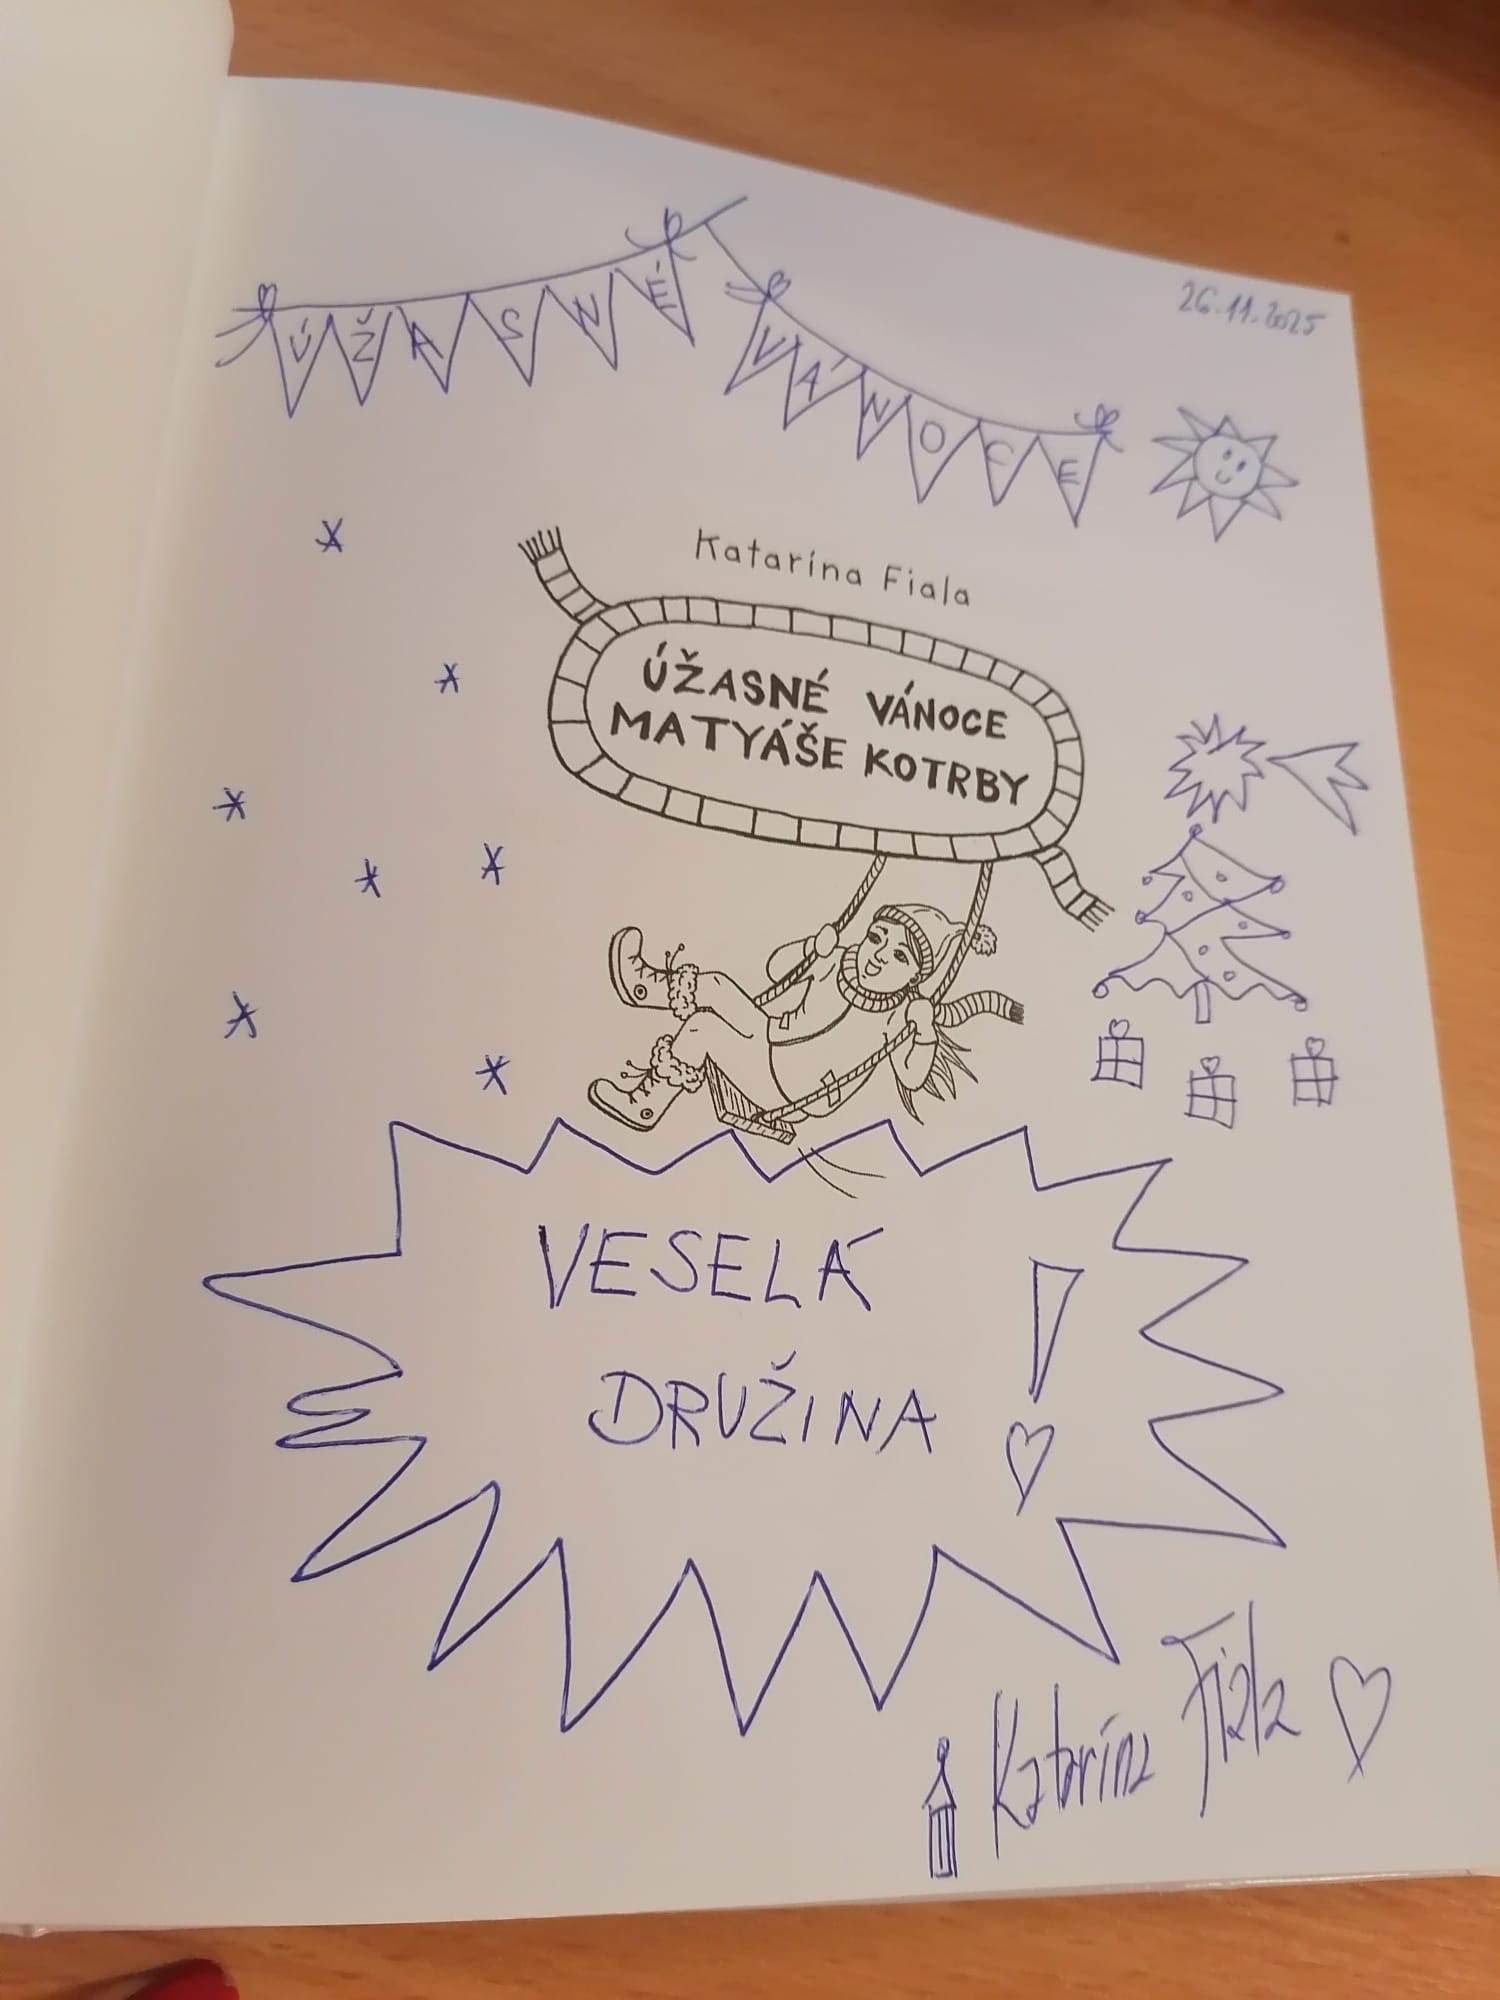 26.11.2025
ÚŽASNÉ VÁNOCE
Katarína Fiala
ÚŽASNÉ VÁNOCE
MATYÁŠE KOTRBY
VESELÁ
DRUŽINA !
Katarína Fiala